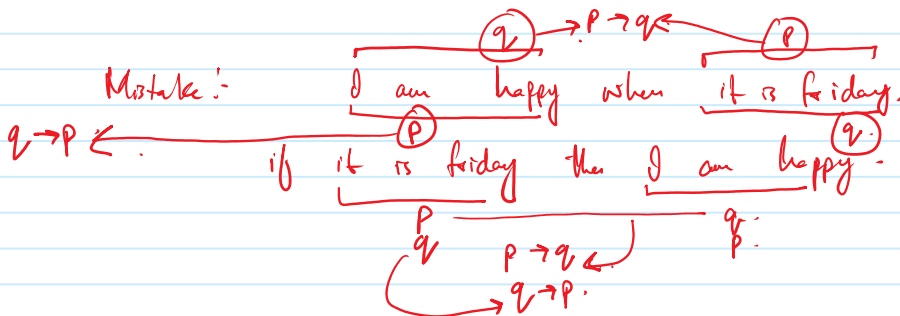 q → p → q ← p
Mistake:- I am happy when it is friday.
q → p ← p q.
if it is friday then I am happy.
p q.
q p → q p.
q → p.